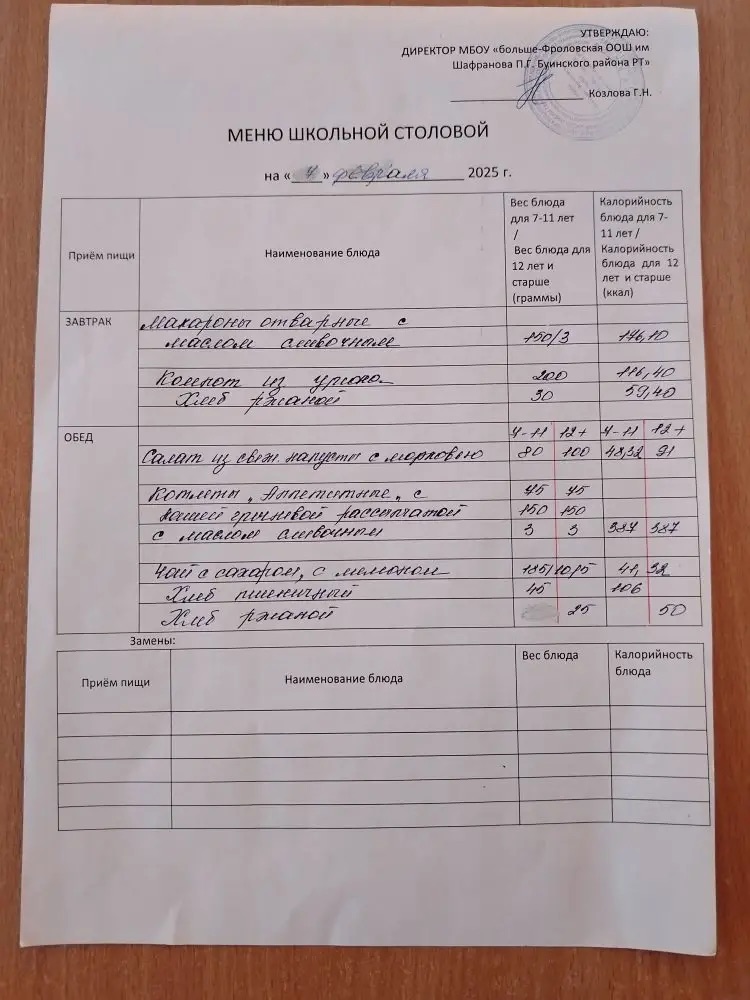 УТВЕРЖДАЮ:
ДИРЕКТОР МБОУ «больше-Фроловская ООШ им
Шафранова П.Г. Буинского района РТ»
Козлова Г.Н.
МЕНЮ ШКОЛЬНОЙ СТОЛОВОЙ
на « 7 » февраля 2025 г.
Приём пищи
Наименование блюда
Вес блюда
для 7-11 лет
/
Вес блюда для
12 лет и
старше
(граммы)
Калорийность
блюда для 7-
11 лет /
Калорийность
блюда для 12
лет и старше
(ккал)
ЗАВТРАК
Макароны отварные с
маслом сливочным 150/3 176,10
Компот из урюка 200 116,40
Хлеб ржаной 30 59,40
ОБЕД 7-11 12+ 7-11 12+
Салат из свеж. капусты с морковью 80 100 48,32 91
Котлеты „Аппетитные„ с 75 75
кашей гречневой рассыпчатой 150 150
с маслом сливочным 3 3 387 387
Чай с сахаром, с лимоном 185/10/5 41,32
Хлеб пшеничный 45 106
Хлеб ржаной 25 50
Замены:
Приём пищи
Наименование блюда
Вес блюда
Калорийность
блюда